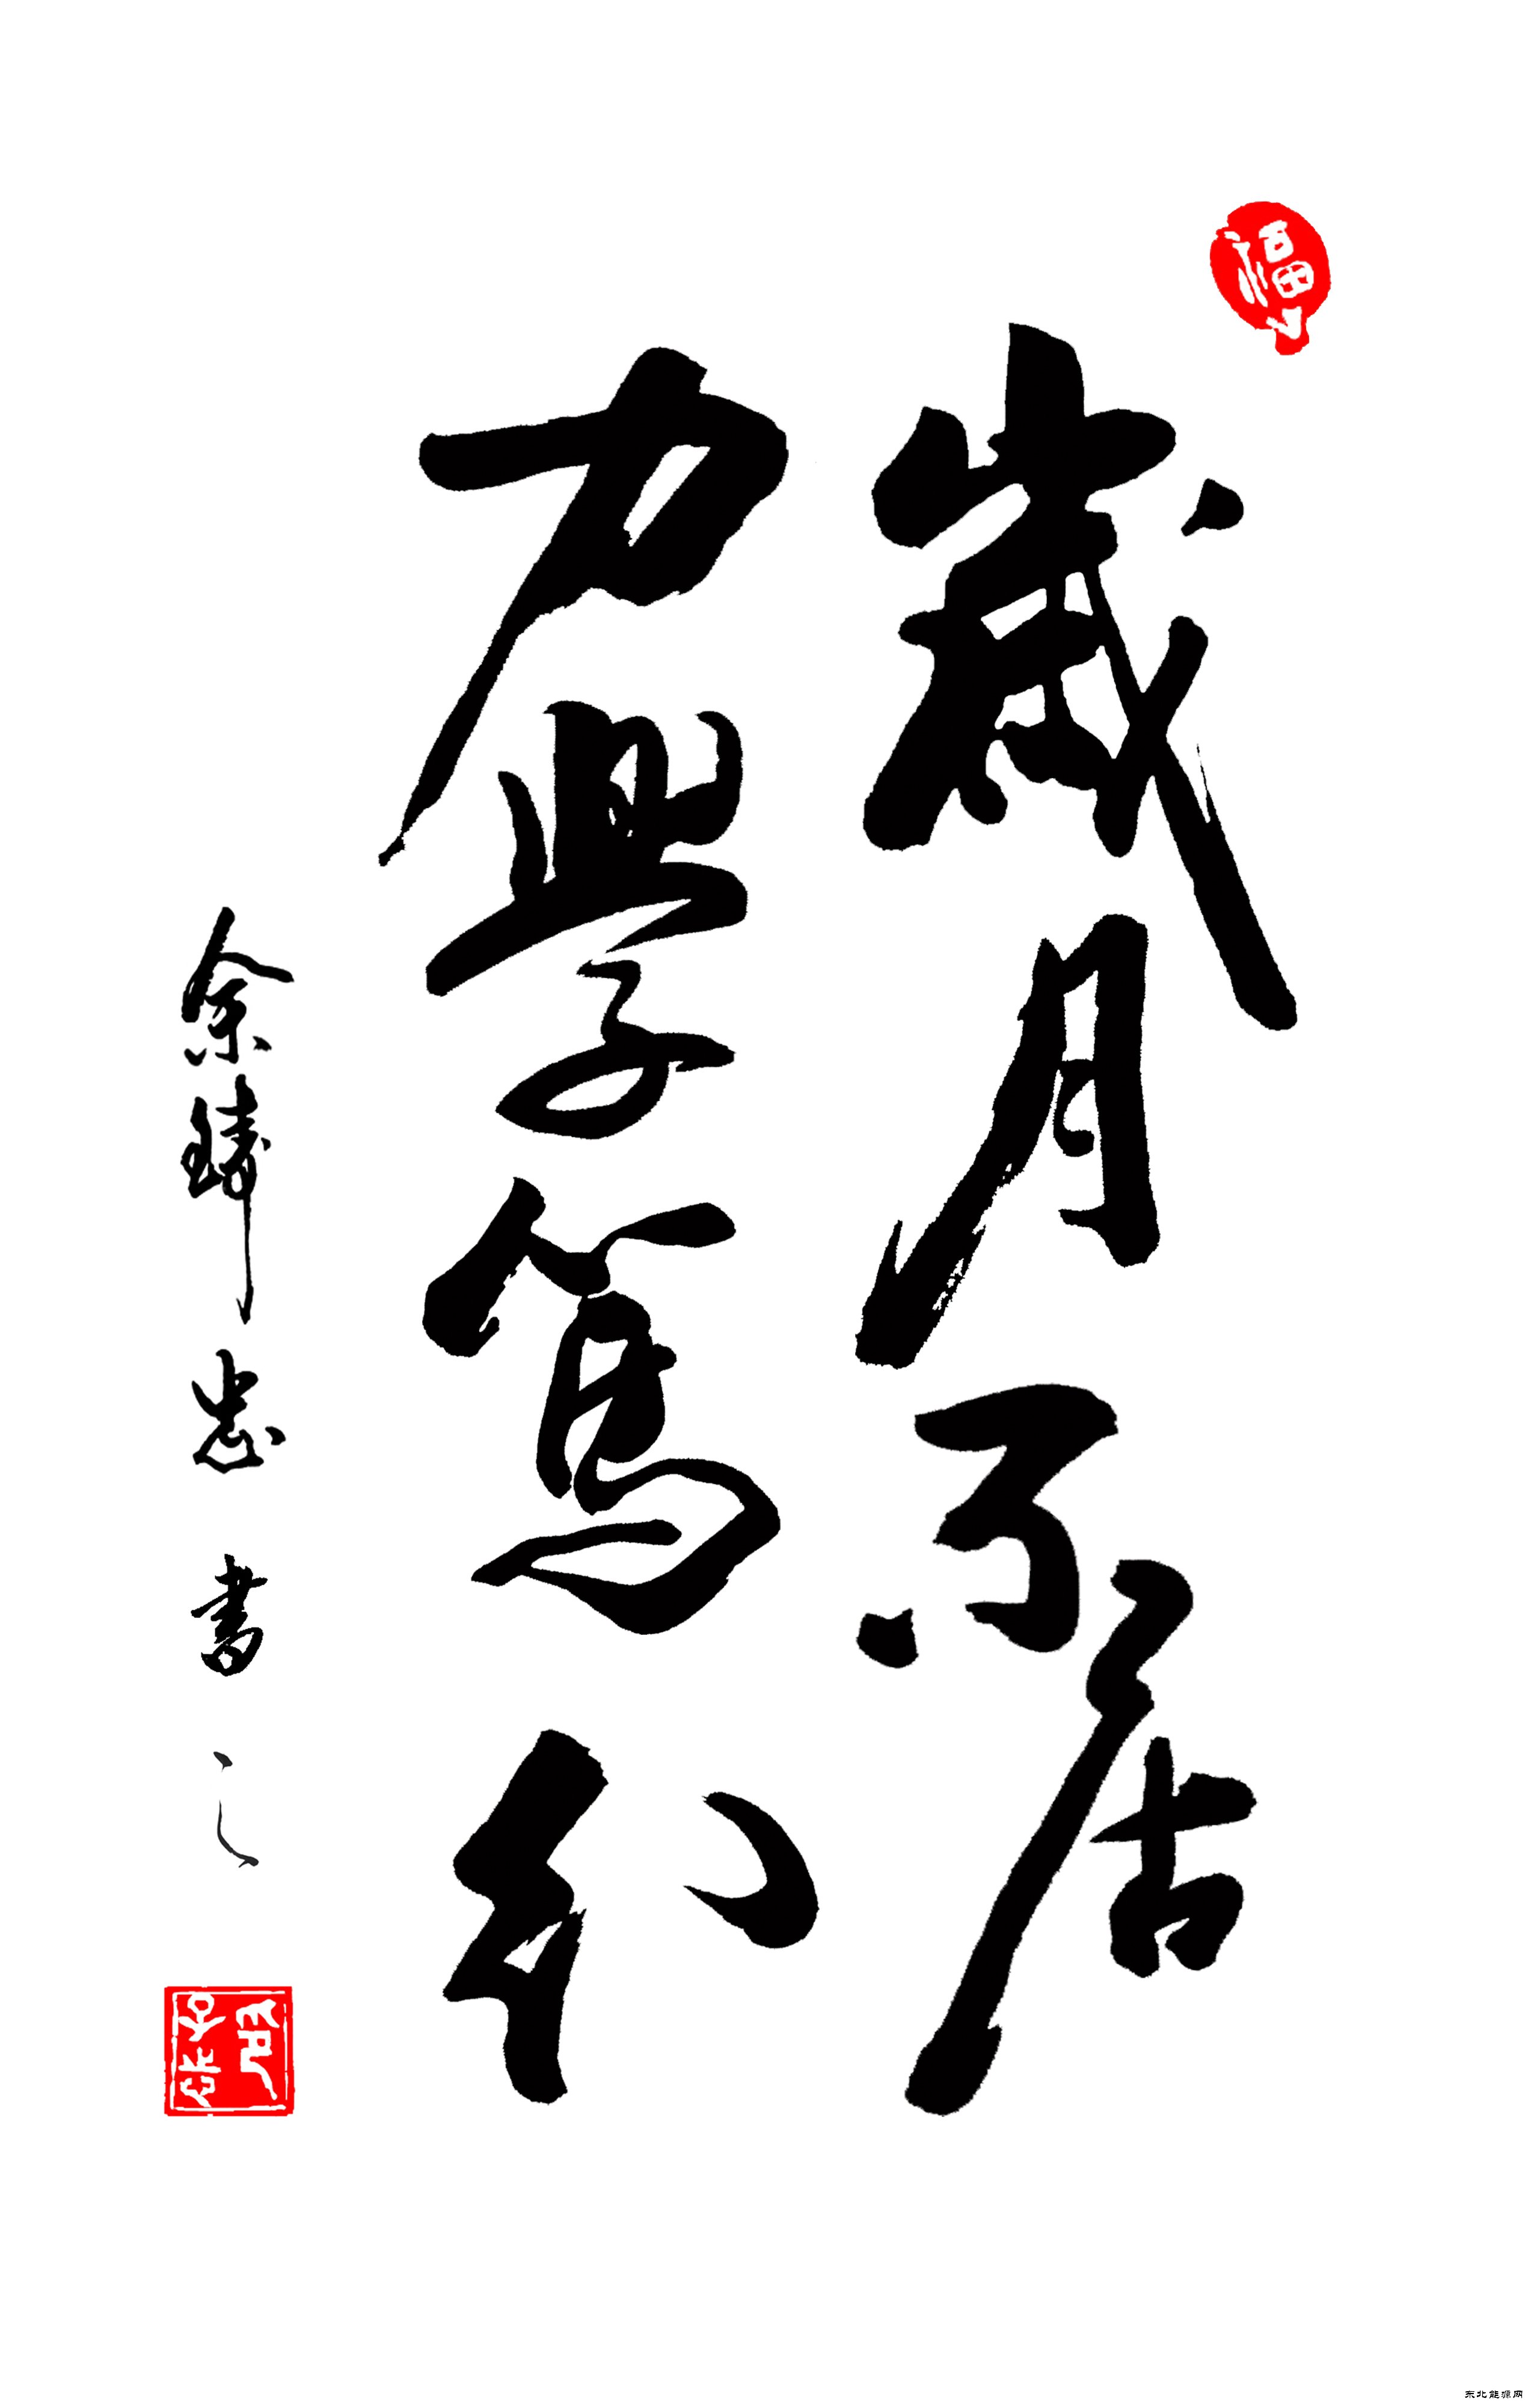 福
歲月不居
力學篤行
余忠書之
东北能源网